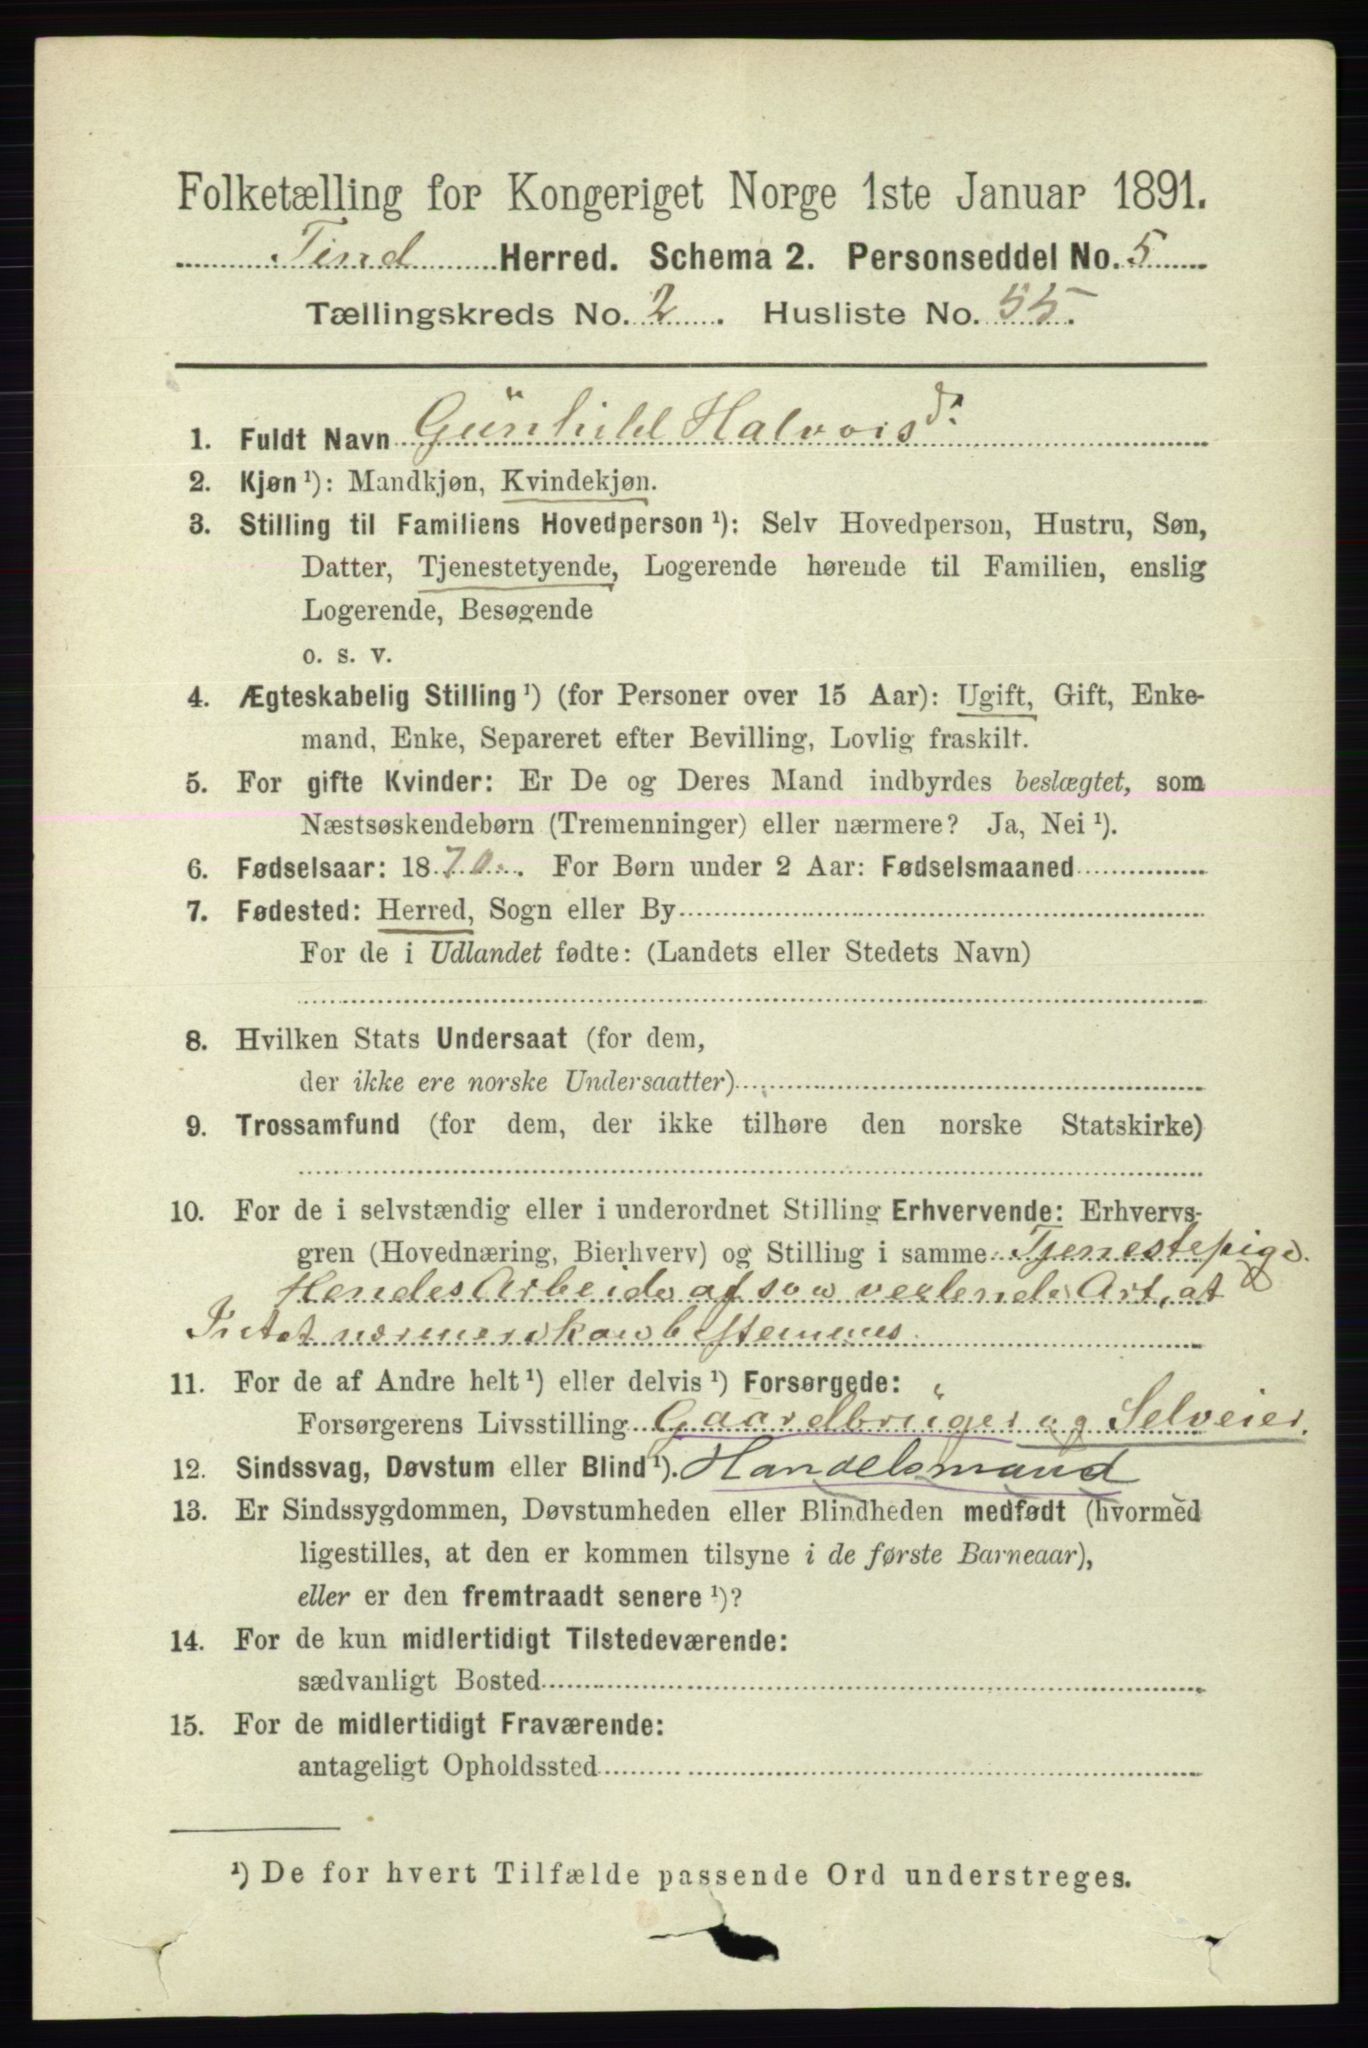 Folketælling for Kongeriget Norge 1ste Januar 1891.
Tind Herred. Schema 2. Personseddel No. 5
Tællingskreds No. 2. Husliste No. 55.
1. Fuldt Navn Gŭnhild Halvorsd.
2. Kjøn ¹): Mandkjøn, Kvindekjøn.
3. Stilling til Familiens Hovedperson ¹): Selv Hovedperson, Hustru, Søn,
Datter, Tjenestetyende, Logerende hørende til Familien, enslig
Logerende, Besøgende
o. s. v.
4. Ægteskabelig Stilling ¹) (for Personer over 15 Aar): Ugift, Gift, Enke-
mand, Enke, Separeret efter Bevilling, Lovlig fraskilt.
5. For gifte Kvinder: Er De og Deres Mand indbyrdes beslægtet, som
Næstsøskendebørn (Tremenninger) eller nærmere? Ja, Nei ¹).
6. Fødselsaar: 1870. For Børn under 2 Aar: Fødselsmaaned
7. Fødested: Herred, Sogn eller By
For de i Udlandet fødte: (Landets eller Stedets Navn)
8. Hvilken Stats Undersaat (for dem,
der ikke ere norske Undersaatter)
9. Trossamfund (for dem, der ikke tilhøre den norske Statskirke)
10. For de i selvstændig eller i underordnet Stilling Erhvervende: Erhvervs-
gren (Hovednæring, Bierhverv) og Stilling i samme Tjenestepige.
Hendes Arbeide af saa vexlende Art, at
Intet nærmere kan bestemmes.
11. For de af Andre helt ¹) eller delvis ¹) Forsørgede:
Forsørgerens Livsstilling Gaardbrŭger og Selveier.
12. Sindssvag, Døvstum eller Blind ¹). Handelsmand
13. Er Sindssygdommen, Døvstumheden eller Blindheden medfødt (hvormed
ligestilles, at den er kommen tilsyne i de første Barneaar),
eller er den fremtraadt senere ¹)?
14. For de kun midlertidigt Tilstedeværende:
sædvanligt Bosted
15. For de midlertidigt Fraværende:
antageligt Opholdssted
¹) De for hvert Tilfælde passende Ord understreges.